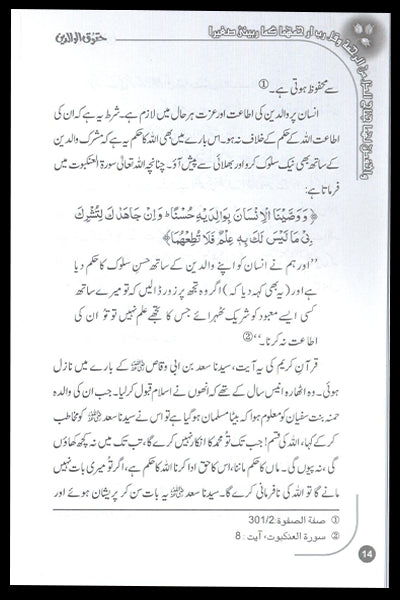 حقوق الوالدین
من الرحمۃ وقل رب ارحمھما کما ربیٰنی صغیرا
سے محفوظ ہوتی ہے۔ ①
انسان پر والدین کی اطاعت اور عزت ہر حال میں لازم ہے۔ شرط یہ ہے کہ ان کی
اطاعت اللہ کے حکم کے خلاف نہ ہو۔ اس بارے میں بھی اللہ کا حکم یہ ہے کہ مشرک والدین
کے ساتھ بھی نیک سلوک کرو اور بھلائی سے پیش آؤ۔ چنانچہ اللہ تعالیٰ سورۃ العنکبوت میں
فرماتا ہے:
﴿ وَوَصَّيْنَا الْإِنْسَانَ بِوَالِدَيْهِ حُسْنًا وَإِنْ جَاهَدَاكَ لِتُشْرِكَ
بِيْ مَا لَيْسَ لَكَ بِهِ عِلْمٌ فَلَا تُطِعْهُمَا ﴾
’’اور ہم نے انسان کو اپنے والدین کے ساتھ حسنِ سلوک کا حکم دیا
ہے اور (یہ بھی کہہ دیا کہ) اگر وہ تجھ پر زور ڈالیں کہ تو میرے ساتھ
کسی ایسے معبود کو شریک ٹھہرائے جس کا تجھے علم نہیں تو تُو ان کی
اطاعت نہ کرنا۔‘‘ ②
قرآنِ کریم کی یہ آیت، سیدنا سعد بن ابی وقاصؓ کے بارے میں نازل
ہوئی۔ وہ اٹھارہ انیس سال کے تھے کہ انھوں نے اسلام قبول کرلیا۔ جب ان کی والدہ
حمنہ بنت سفیان کو معلوم ہوا کہ بیٹا مسلمان ہو گیا ہے تو اس نے سیدنا سعدؓ کو مخاطب
کر کے کہا، اللہ کی قسم! جب تک تُو محمد کا انکار نہیں کرے گا، تب تک میں نہ کچھ کھاؤں
گی، نہ پیوں گی۔ ماں کا حکم ماننا، اس کا حق ادا کرنا اللہ کا حکم ہے، اگر تُو میری بات نہیں
مانے گا تو اللہ کی نافرمانی کرے گا۔ سیدنا سعدؓ یہ بات سن کر پریشان ہوئے اور
① صفة الصفوة: 301/2
② سورة العنكبوت، آیت: 8
14